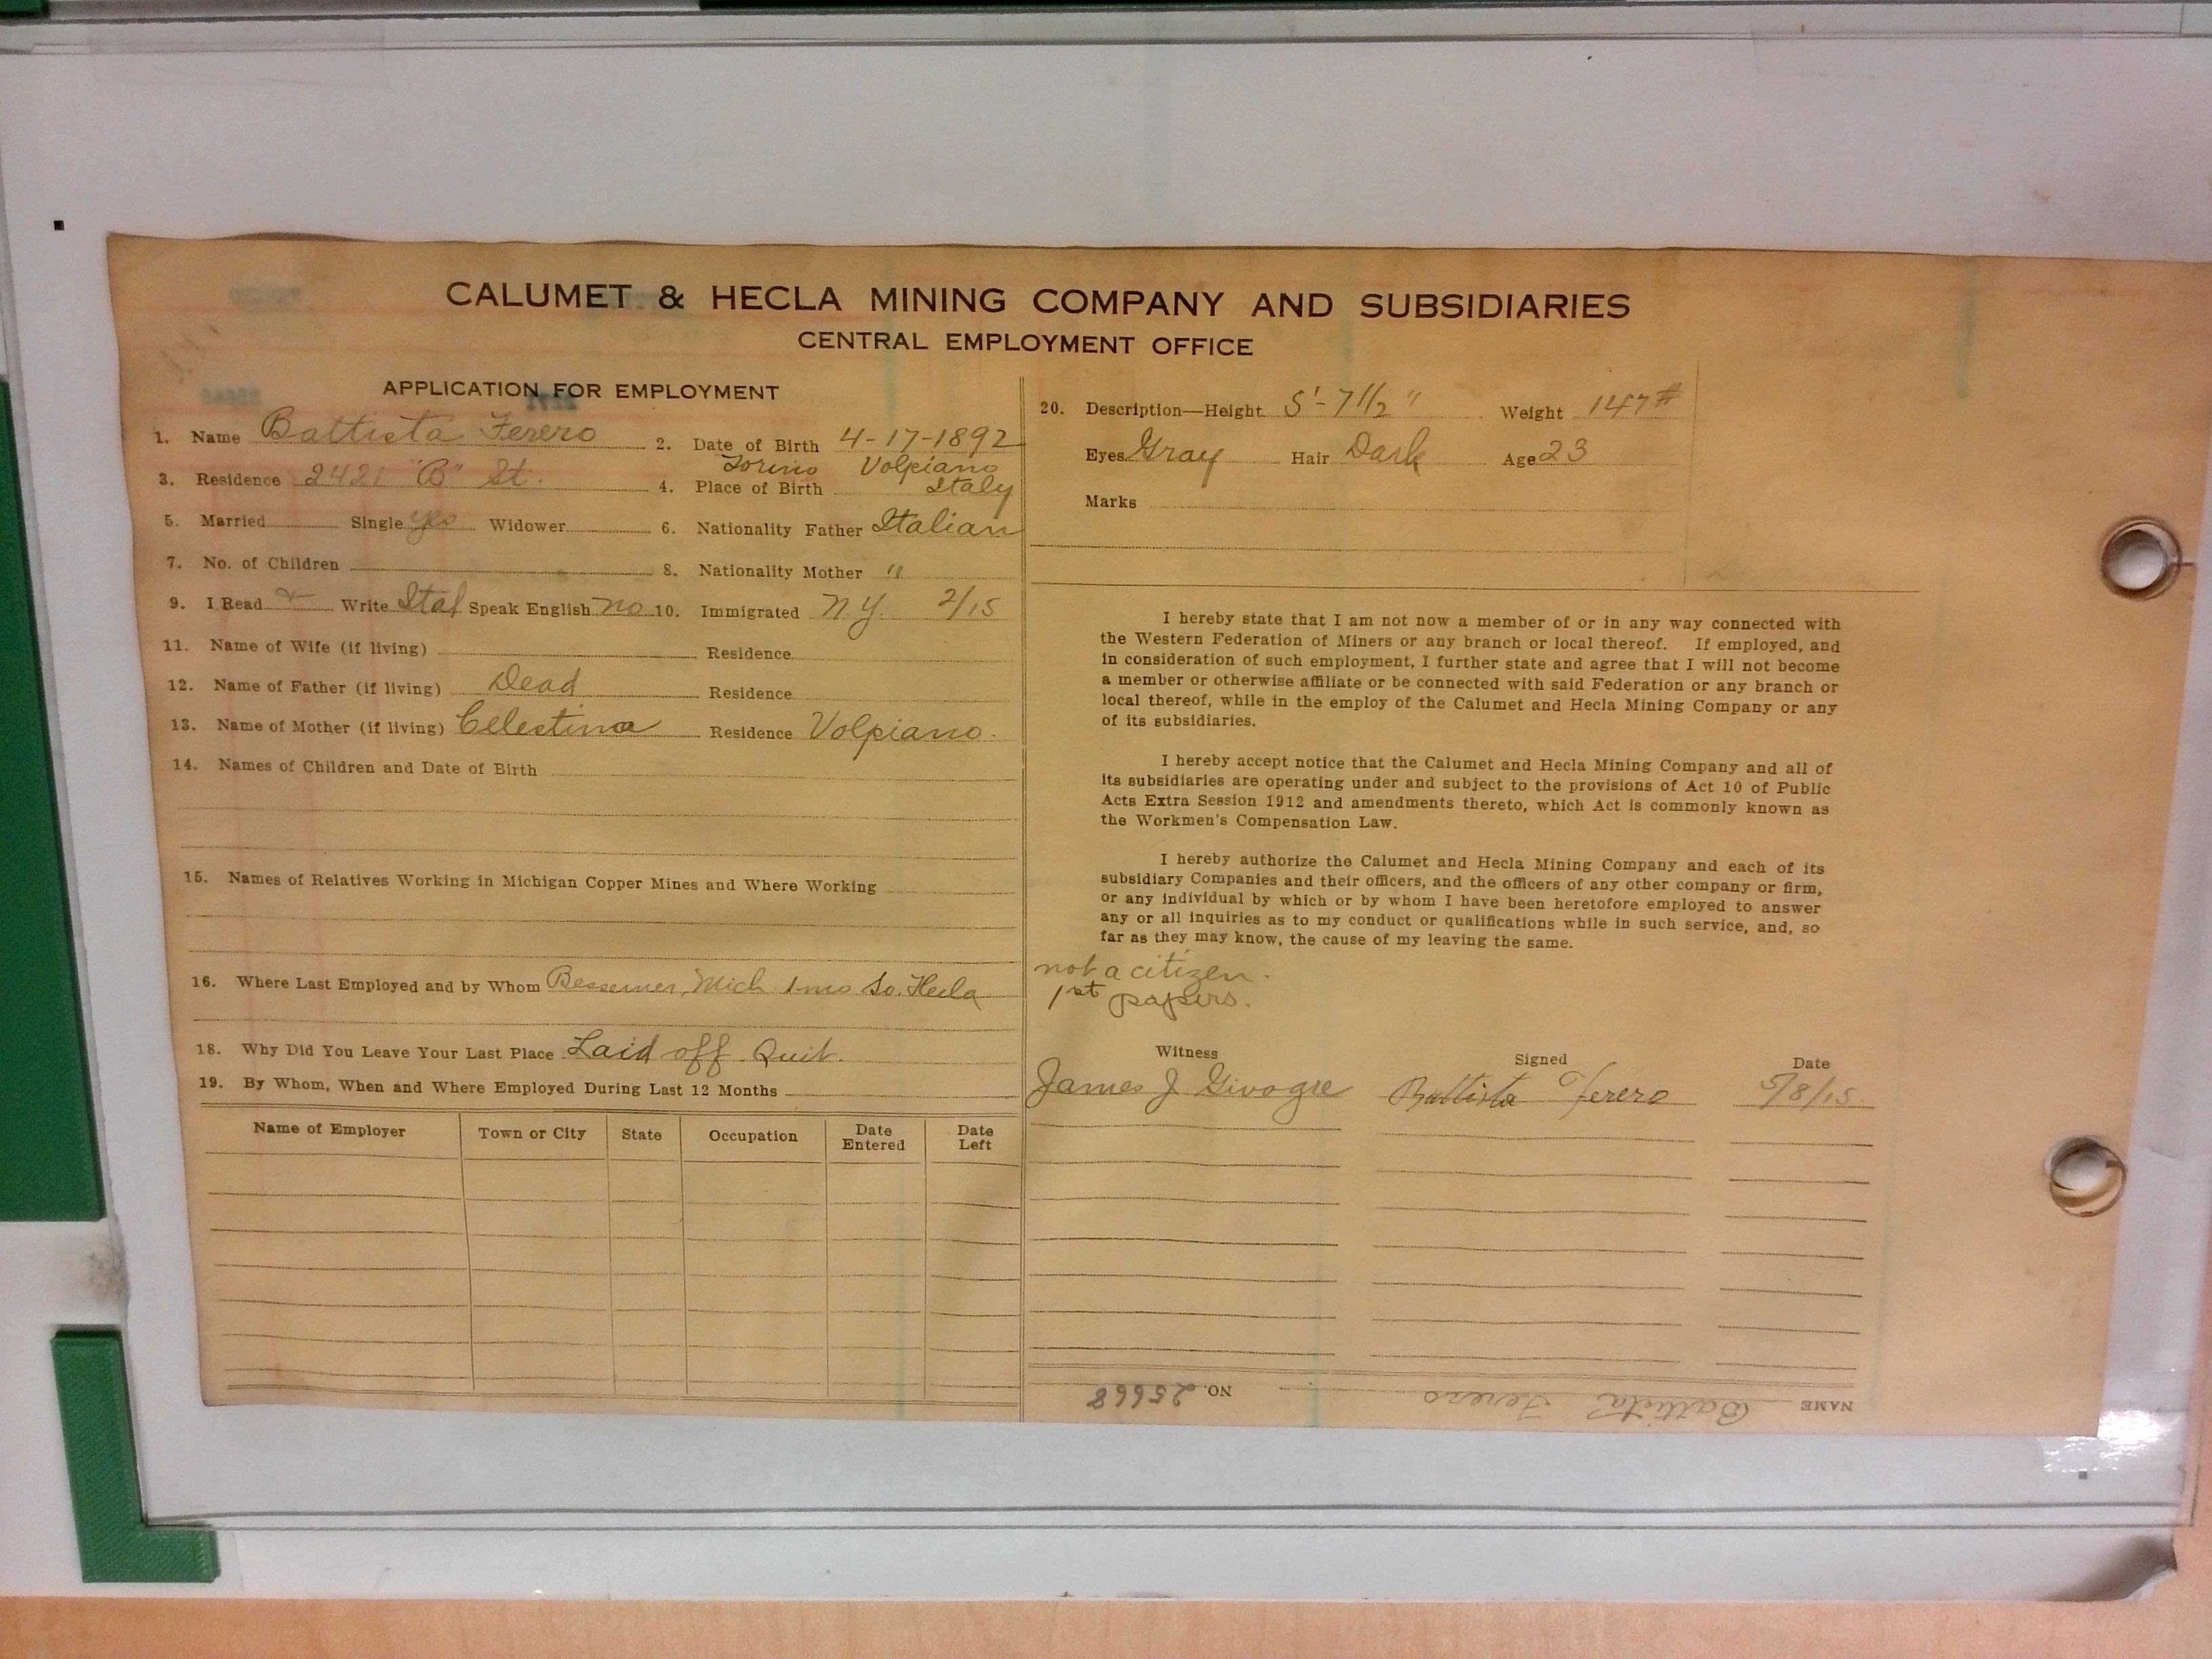 CALUMET & HECLA MINING COMPANY AND SUBSIDIARIES
CENTRAL EMPLOYMENT OFFICE
APPLICATION FOR EMPLOYMENT
1. Name Battista Ferero 2. Date of Birth 4-17-1892
3. Residence 2421 "B" St. 4. Place of Birth Torino Volpiano Italy
5. Married Single yes Widower 6. Nationality Father Italian
7. No. of Children 8. Nationality Mother "
9. I Read + Write Ital Speak English no 10. Immigrated N.Y. 2/15
11. Name of Wife (if living) Residence
12. Name of Father (if living) Dead Residence
13. Name of Mother (if living) Celestina Residence Volpiano.
14. Names of Children and Date of Birth
15. Names of Relatives Working in Michigan Copper Mines and Where Working
16. Where Last Employed and by Whom Bessemer, Mich 1 mo So. Hecla
18. Why Did You Leave Your Last Place Laid off Quit.
19. By Whom, When and Where Employed During Last 12 Months
Name of Employer Town or City State Occupation Date Entered Date Left
20. Description—Height 5'-7 1/2" Weight 147#
Eyes Gray Hair Dark Age 23
Marks
I hereby state that I am not now a member of or in any way connected with
the Western Federation of Miners or any branch or local thereof. If employed, and
in consideration of such employment, I further state and agree that I will not become
a member or otherwise affiliate or be connected with said Federation or any branch or
local thereof, while in the employ of the Calumet and Hecla Mining Company or any
of its subsidiaries.
I hereby accept notice that the Calumet and Hecla Mining Company and all of
its subsidiaries are operating under and subject to the provisions of Act 10 of Public
Acts Extra Session 1912 and amendments thereto, which Act is commonly known as
the Workmen's Compensation Law.
I hereby authorize the Calumet and Hecla Mining Company and each of its
subsidiary Companies and their officers, and the officers of any other company or firm,
or any individual by which or by whom I have been heretofore employed to answer
any or all inquiries as to my conduct or qualifications while in such service, and, so
far as they may know, the cause of my leaving the same.
not a citizen.
1st papers.
Witness Signed Date
James J Givogre Battista Ferero 5/8/15
NAME Battista Ferero NO. 25668